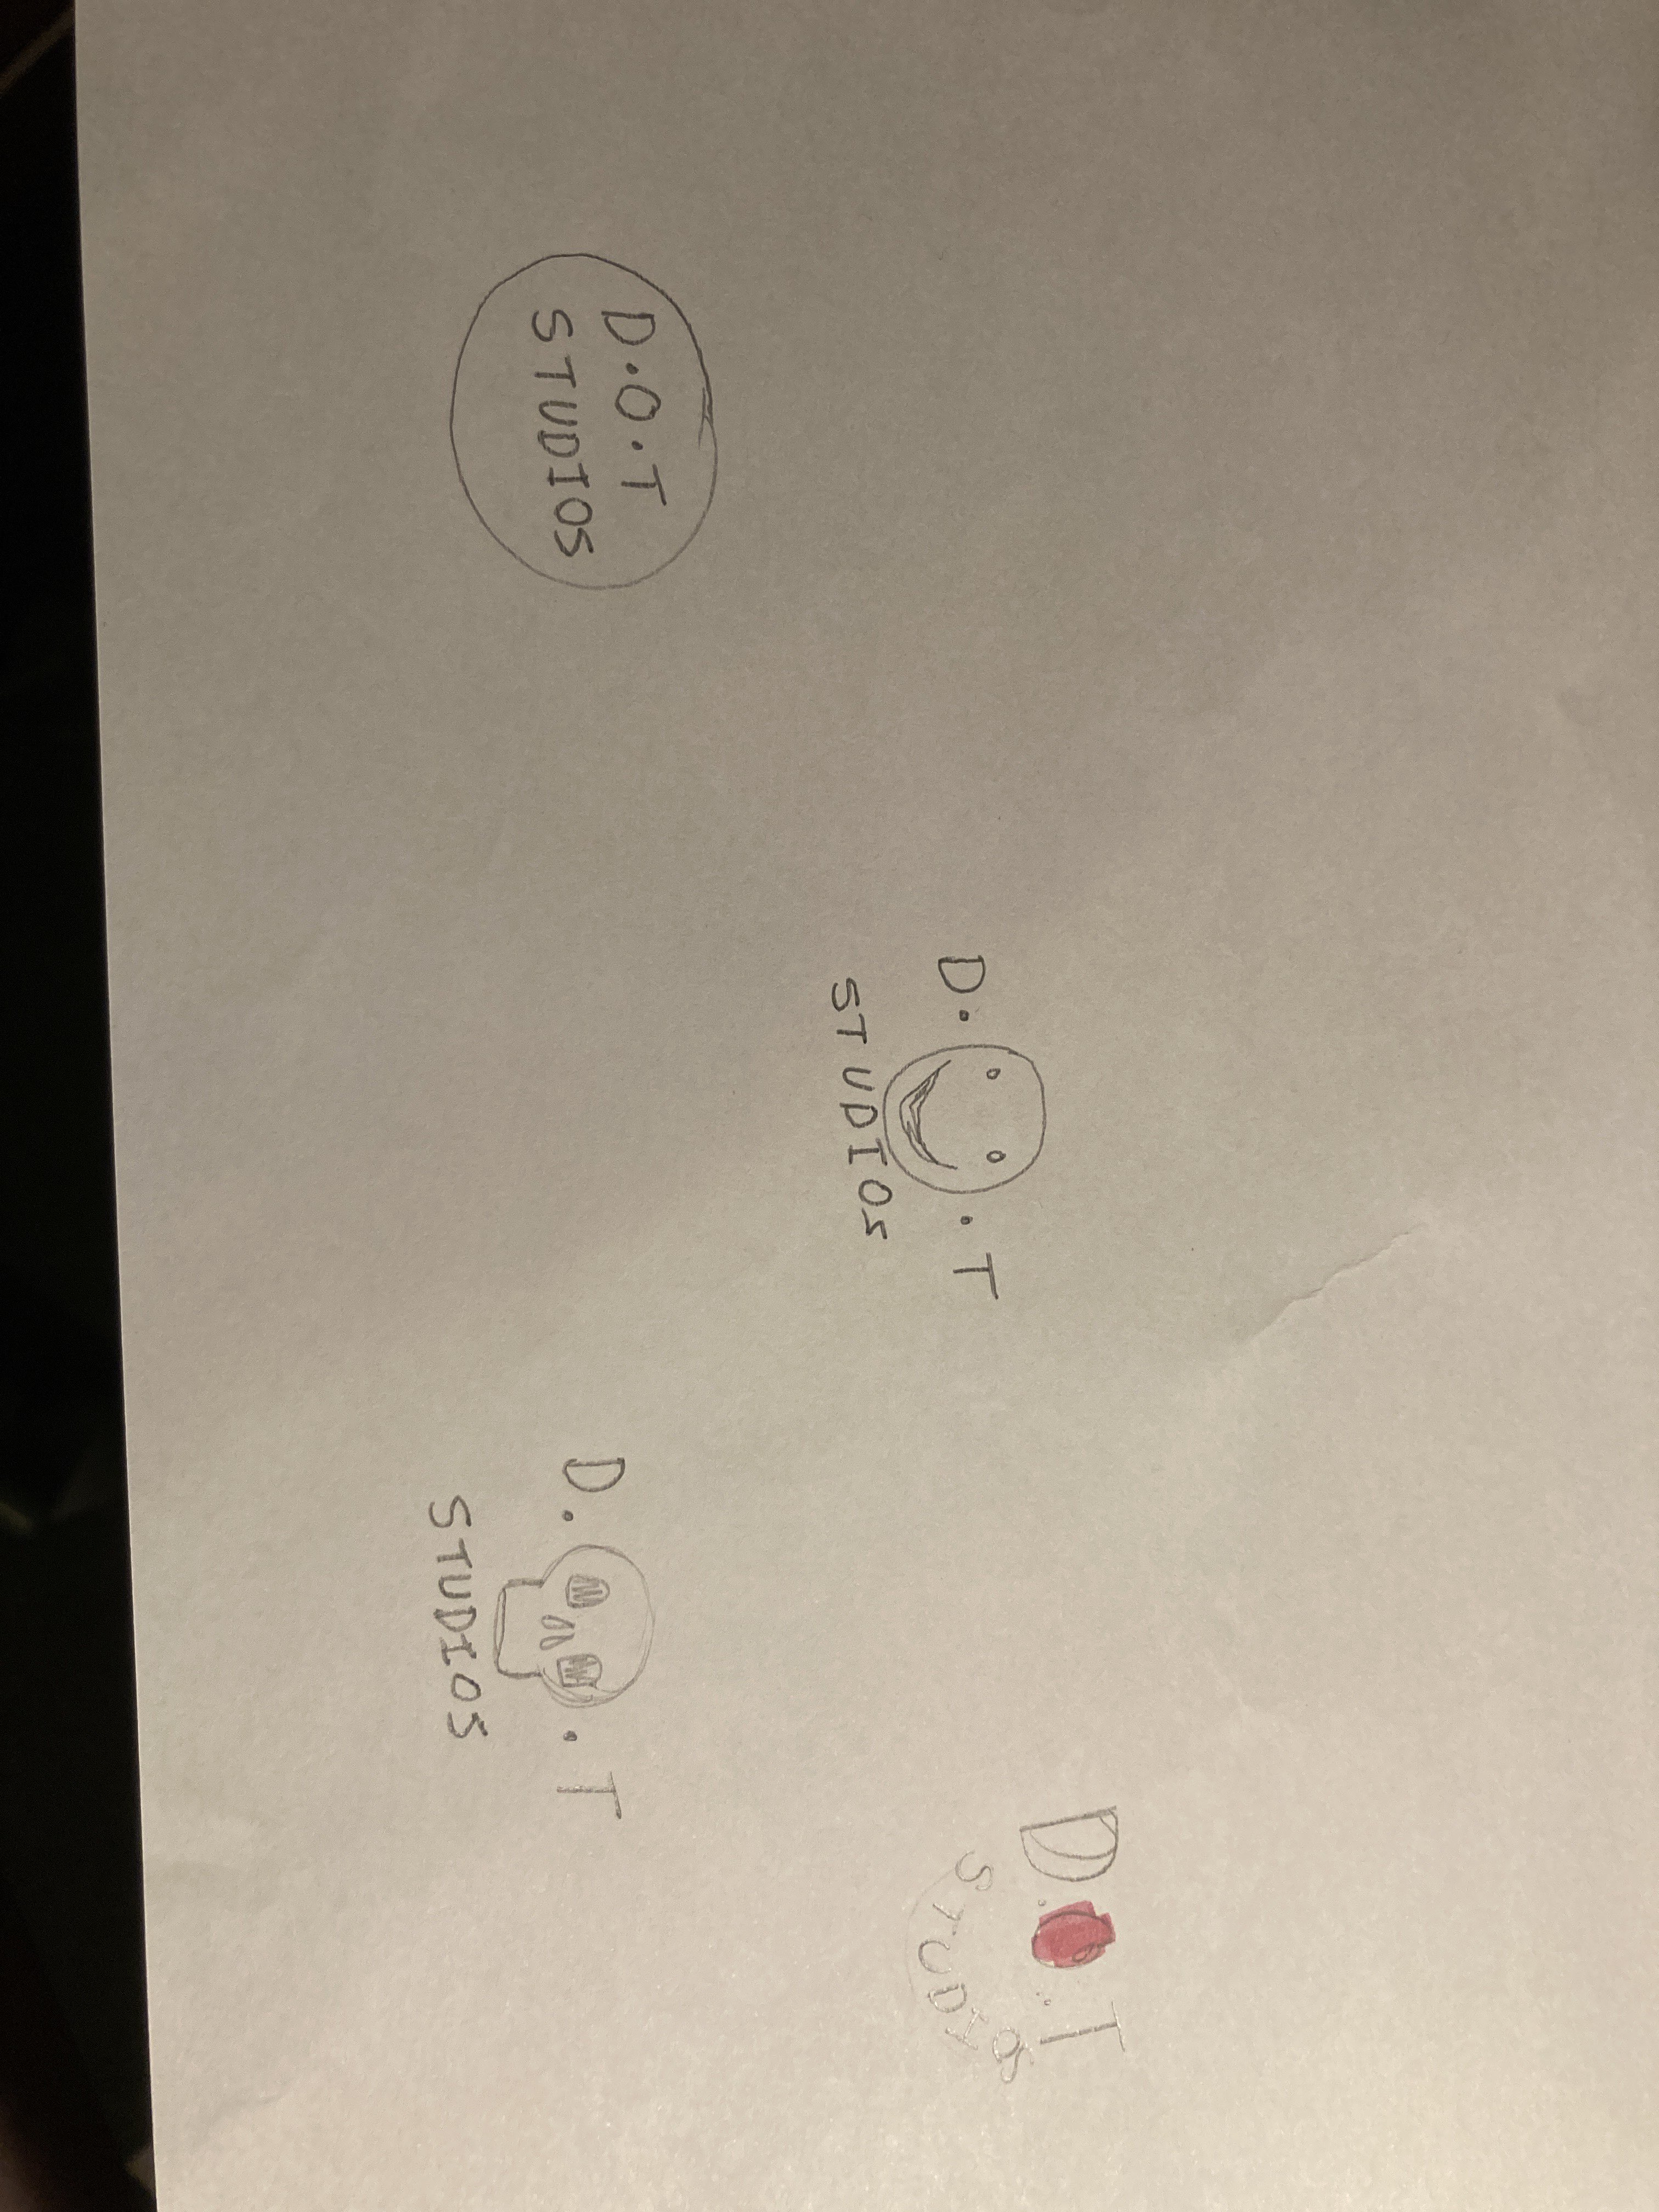 D.O.T
STUDIOS
D. .T
STUDIOS
D. .T
STUDIOS
D.O.T
STUDIOS